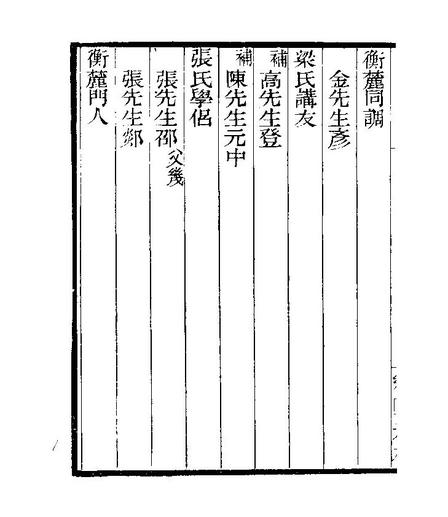 衡麓同調
金先生彥
梁氏講友
補高先生登
補陳先生元中
張氏學侶
張先生祁父幾
張先生郯
衡麓門人